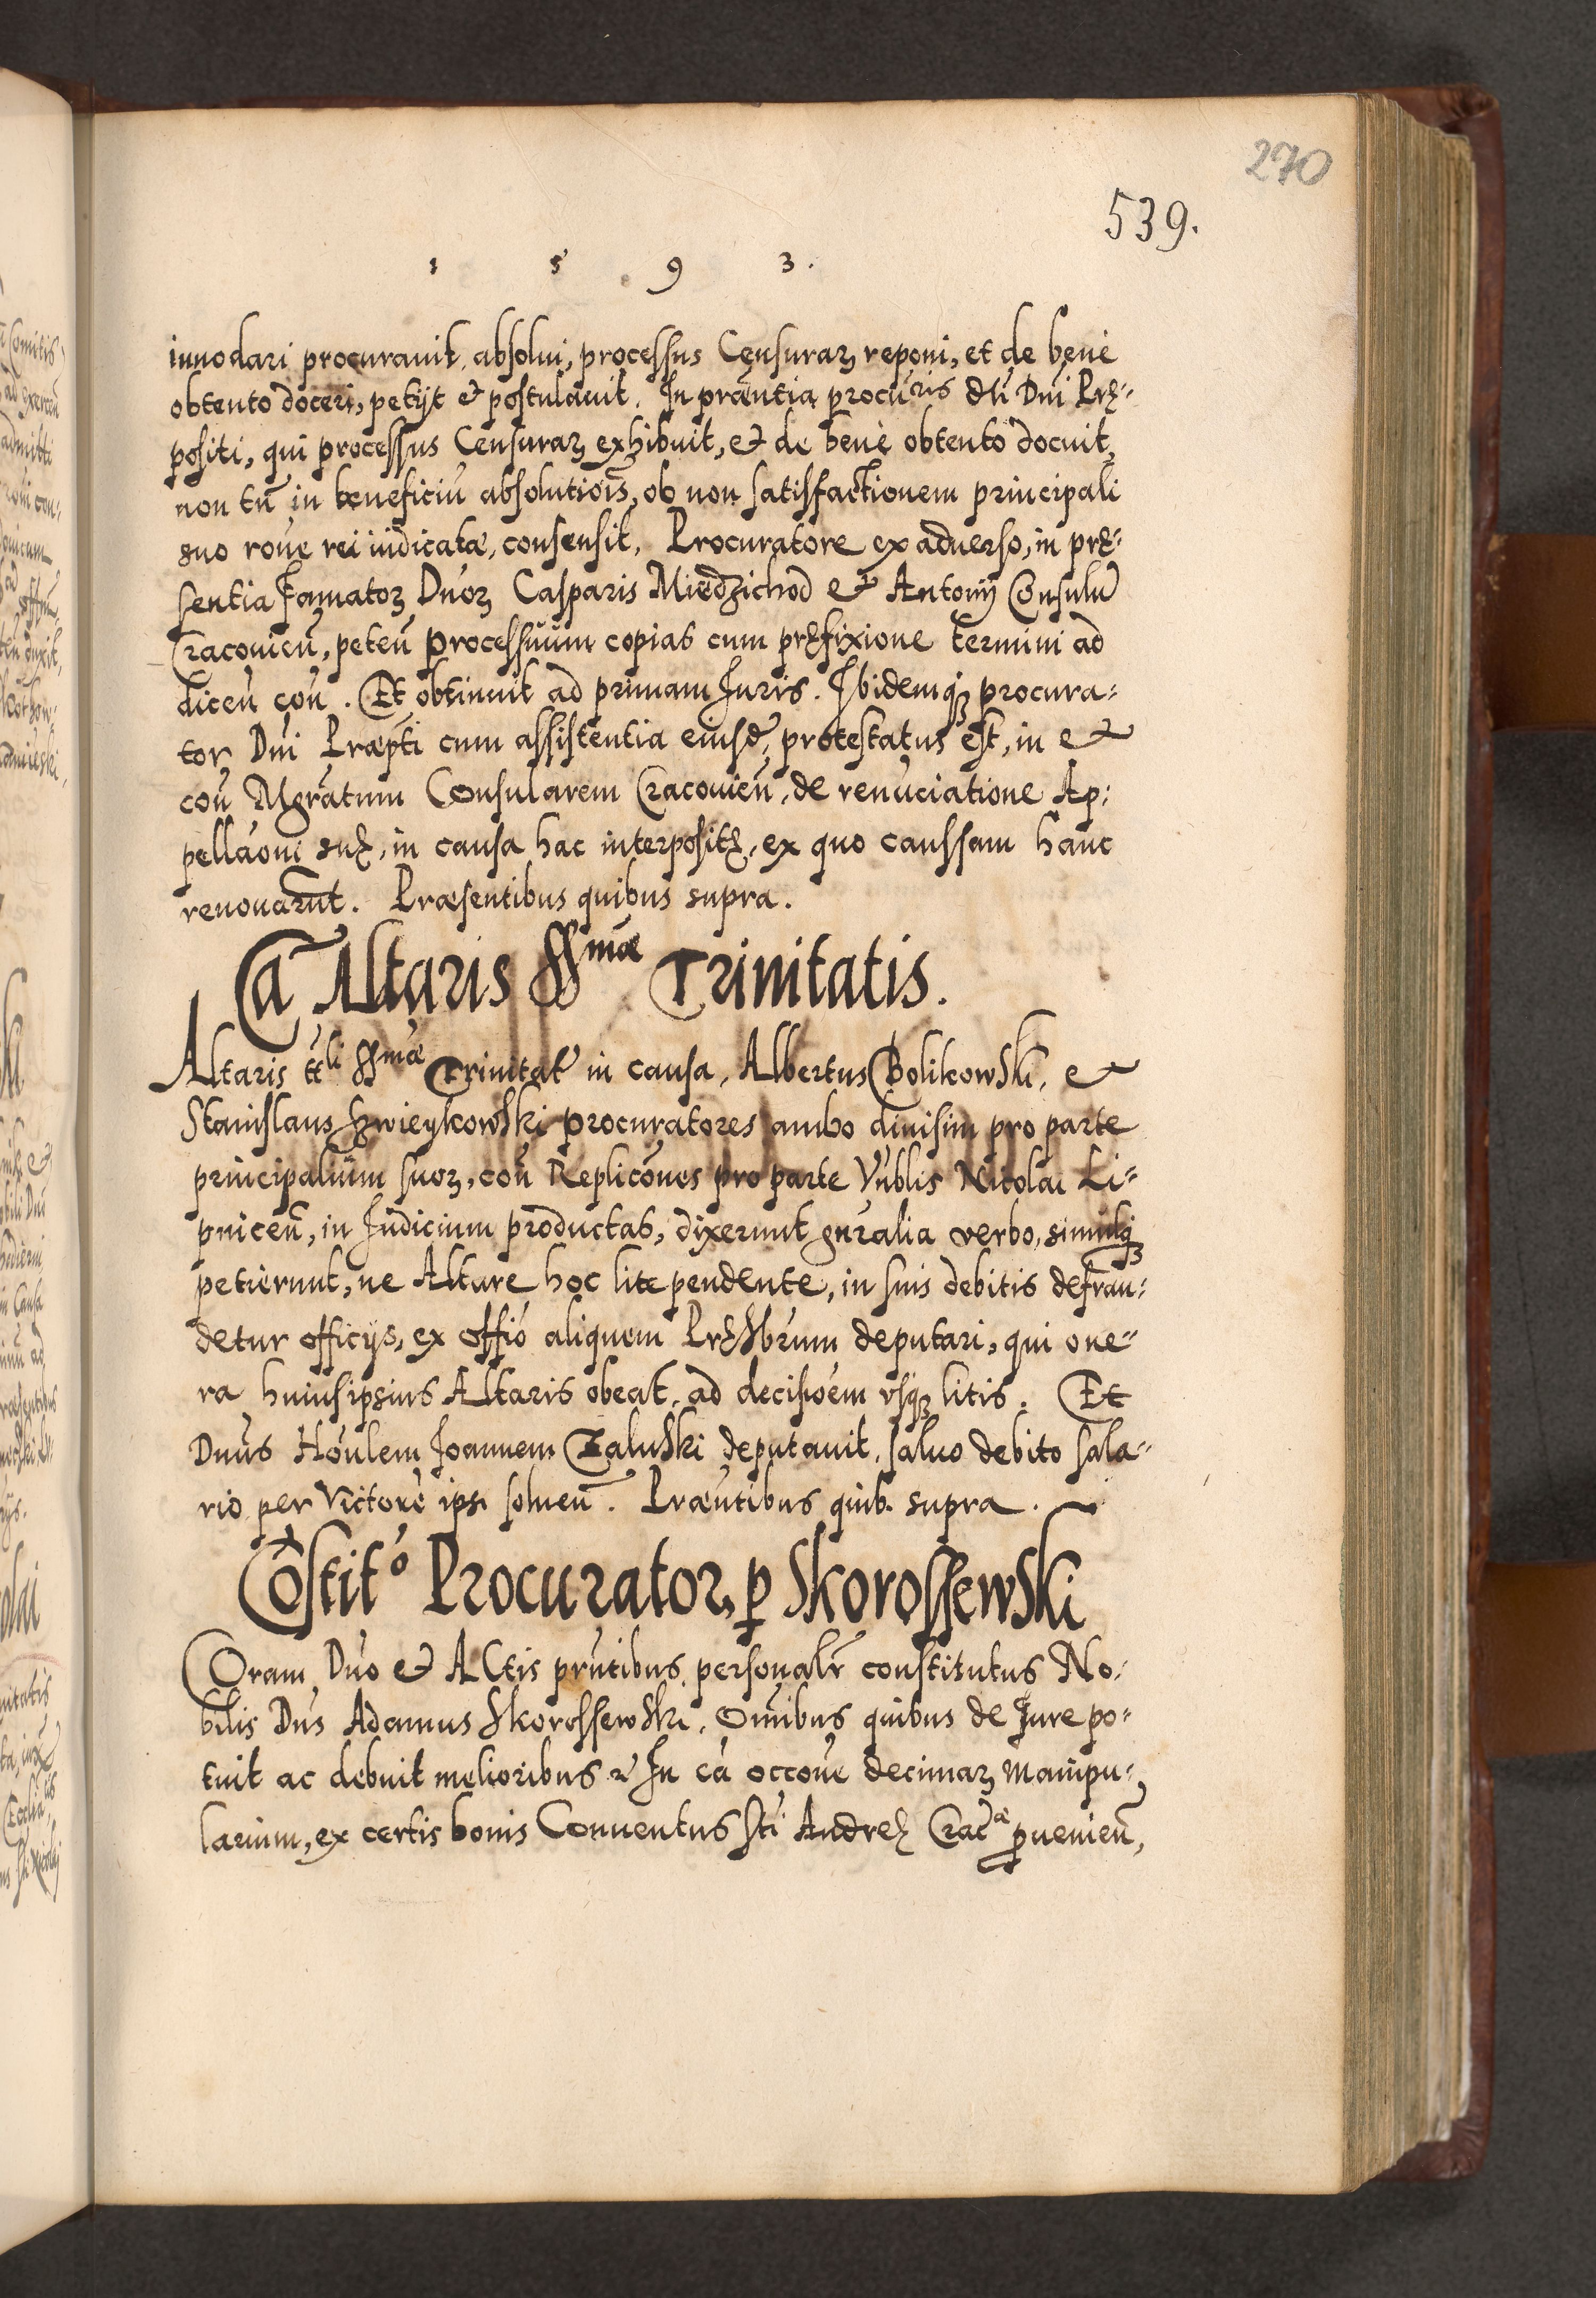 270
539.
1 5 9 3.
innodari procurauit, absolui, processus Censuraꝝ reponi, et de benè
obtento doceri, petijt & postulauit. In præntia procuris dti Dni Prę-
positi, qui processus Censuraꝝ exhibuit, & de benè obtento docuit,
non tn̄ in beneficiū absolutiois, ob non satisfactionem principali
suo roūe rei iudicatæ, consensit. Procuratore ex aduerso, in prę-
sentia Famatoꝝ Dnoꝝ Casparis Miedzichod & Antonij Consulū
Cracouien̄, peten̄ processuum copias cum pręfixione termini ad
dicen̄ con̄. Et obtinuit ad primam Iuris. Ibidemqꝫ procura-
tor Dni Præpti cum assistentia eiusd̄, protestatus est, in &
con̄ Mgrātum Consularem Cracouien̄, de renūciatione Ap-
pellaōni suę, in causa hac interpositę, ex quo caussam hanc
renouarūt. Præsentibus quibus supra.
Cā Altaris SSmæ Trinitatis.
Altaris ttli SSmæ Trinitat̄ in causa, Albertus Bolikowski, &
Stanislaus Zwieykowski procuratores ambo diuisim pro parte
principalium suoꝝ, con̄ Replicōnes pro parte Vnblis Nicolai Li-
pnicen̄, in Iudicium productas, dixerunt gnralia verbo, simulqꝫ
petierunt, ne Altare hoc lite pendente, in suis debitis defrau-
detur officijs, ex offio aliquem Pręsbrum deputari, qui one-
ra huiusipsius Altaris obeat, ad decisiōem vsqꝫ litis. Et
Dnus Honlem Ioannem Zaluski deputauit, saluo debito sala-
rio per Victorē ipsi soluen̄. Præntibus quib. supra.
Cōstito Procuratoꝝ ꝑ Skorossewski
Coram Dno & Actis prntibus personalr̄ constitutus No-
bilis Dns Adamus Skorossewski, Omnibus quibus de Iure po-
tuit ac debuit melioribus & In cā occōne decimaꝝ manipu-
larium, ex certis bonis Conuentus Sti Andreę Cracæ ꝓuenien̄,